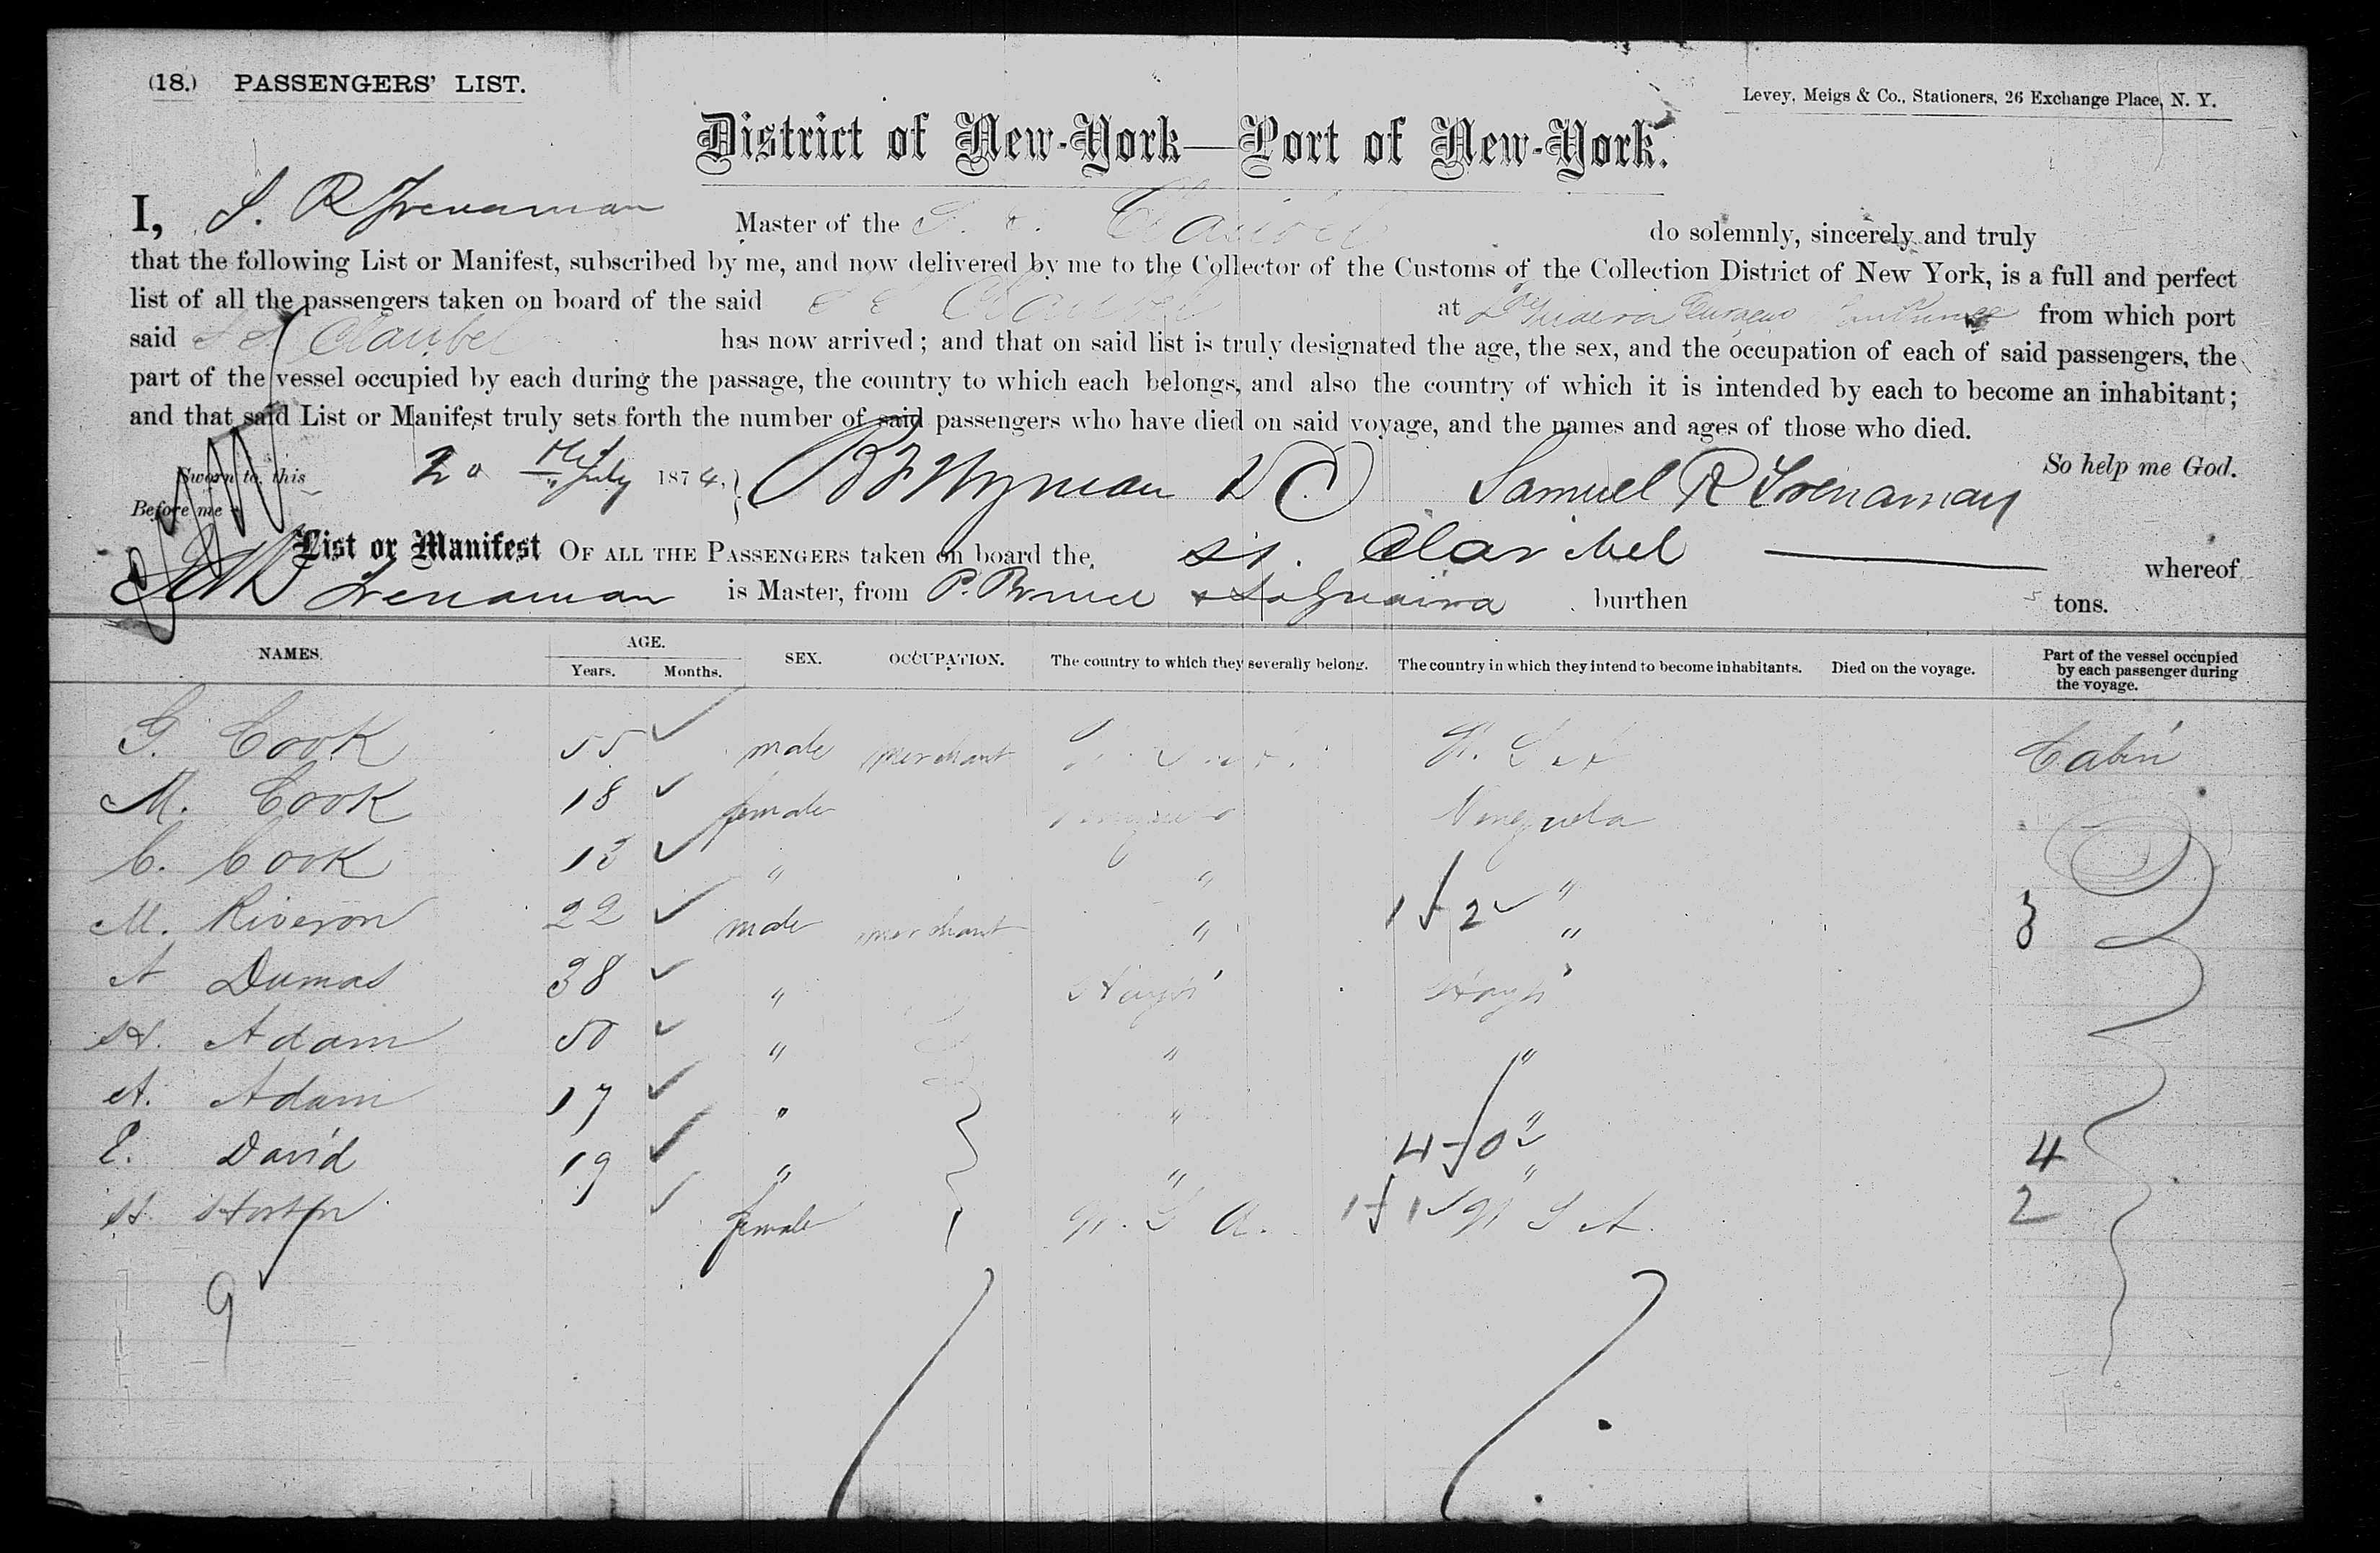 (18.) PASSENGERS' LIST.
Levey, Meigs & Co., Stationers, 26 Exchange Place, N. Y.
District of New-York—Port of New-York.
I, S. R Trenaman Master of the S. S. Claribel do solemnly, sincerely and truly
that the following List or Manifest, subscribed by me, and now delivered by me to the Collector of the Customs of the Collection District of New York, is a full and perfect
list of all the passengers taken on board of the said S S Claribel at Curacao from which port
said S S Claribel has now arrived; and that on said list is truly designated the age, the sex, and the occupation of each of said passengers, the
part of the vessel occupied by each during the passage, the country to which each belongs, and also the country of which it is intended by each to become an inhabitant;
and that said List or Manifest truly sets forth the number of said passengers who have died on said voyage, and the names and ages of those who died.
So help me God.
Sworn to this 20 July 1874, B F Wyman D C Samuel R Trenaman
Before me
List or Manifest OF ALL THE PASSENGERS taken on board the, SS. Claribel whereof
Trenaman is Master, from P. Prince & LaGuaira burthen tons.
NAMES. AGE. Years. Months. SEX. OCCUPATION. The country to which they severally belong. The country in which they intend to become inhabitants. Died on the voyage. Part of the vessel occupied by each passenger during the voyage.
G. Cook 55 ✓ male merchant Cabin
M. Cook 18 ✓ female Venezuela
C. Cook 13 ✓ " " "
M. Riveron 22 ✓ male merchant " 1 2 ✓ " 3
A Dumas 38 ✓ " Hayti Hayti
H. Adam 50 ✓ " " "
A. Adam 17 ✓ " " "
E. David 19 ✓ " " 4 0 " 4
H. Horton ✓ female 1 1 ✓ 2
9